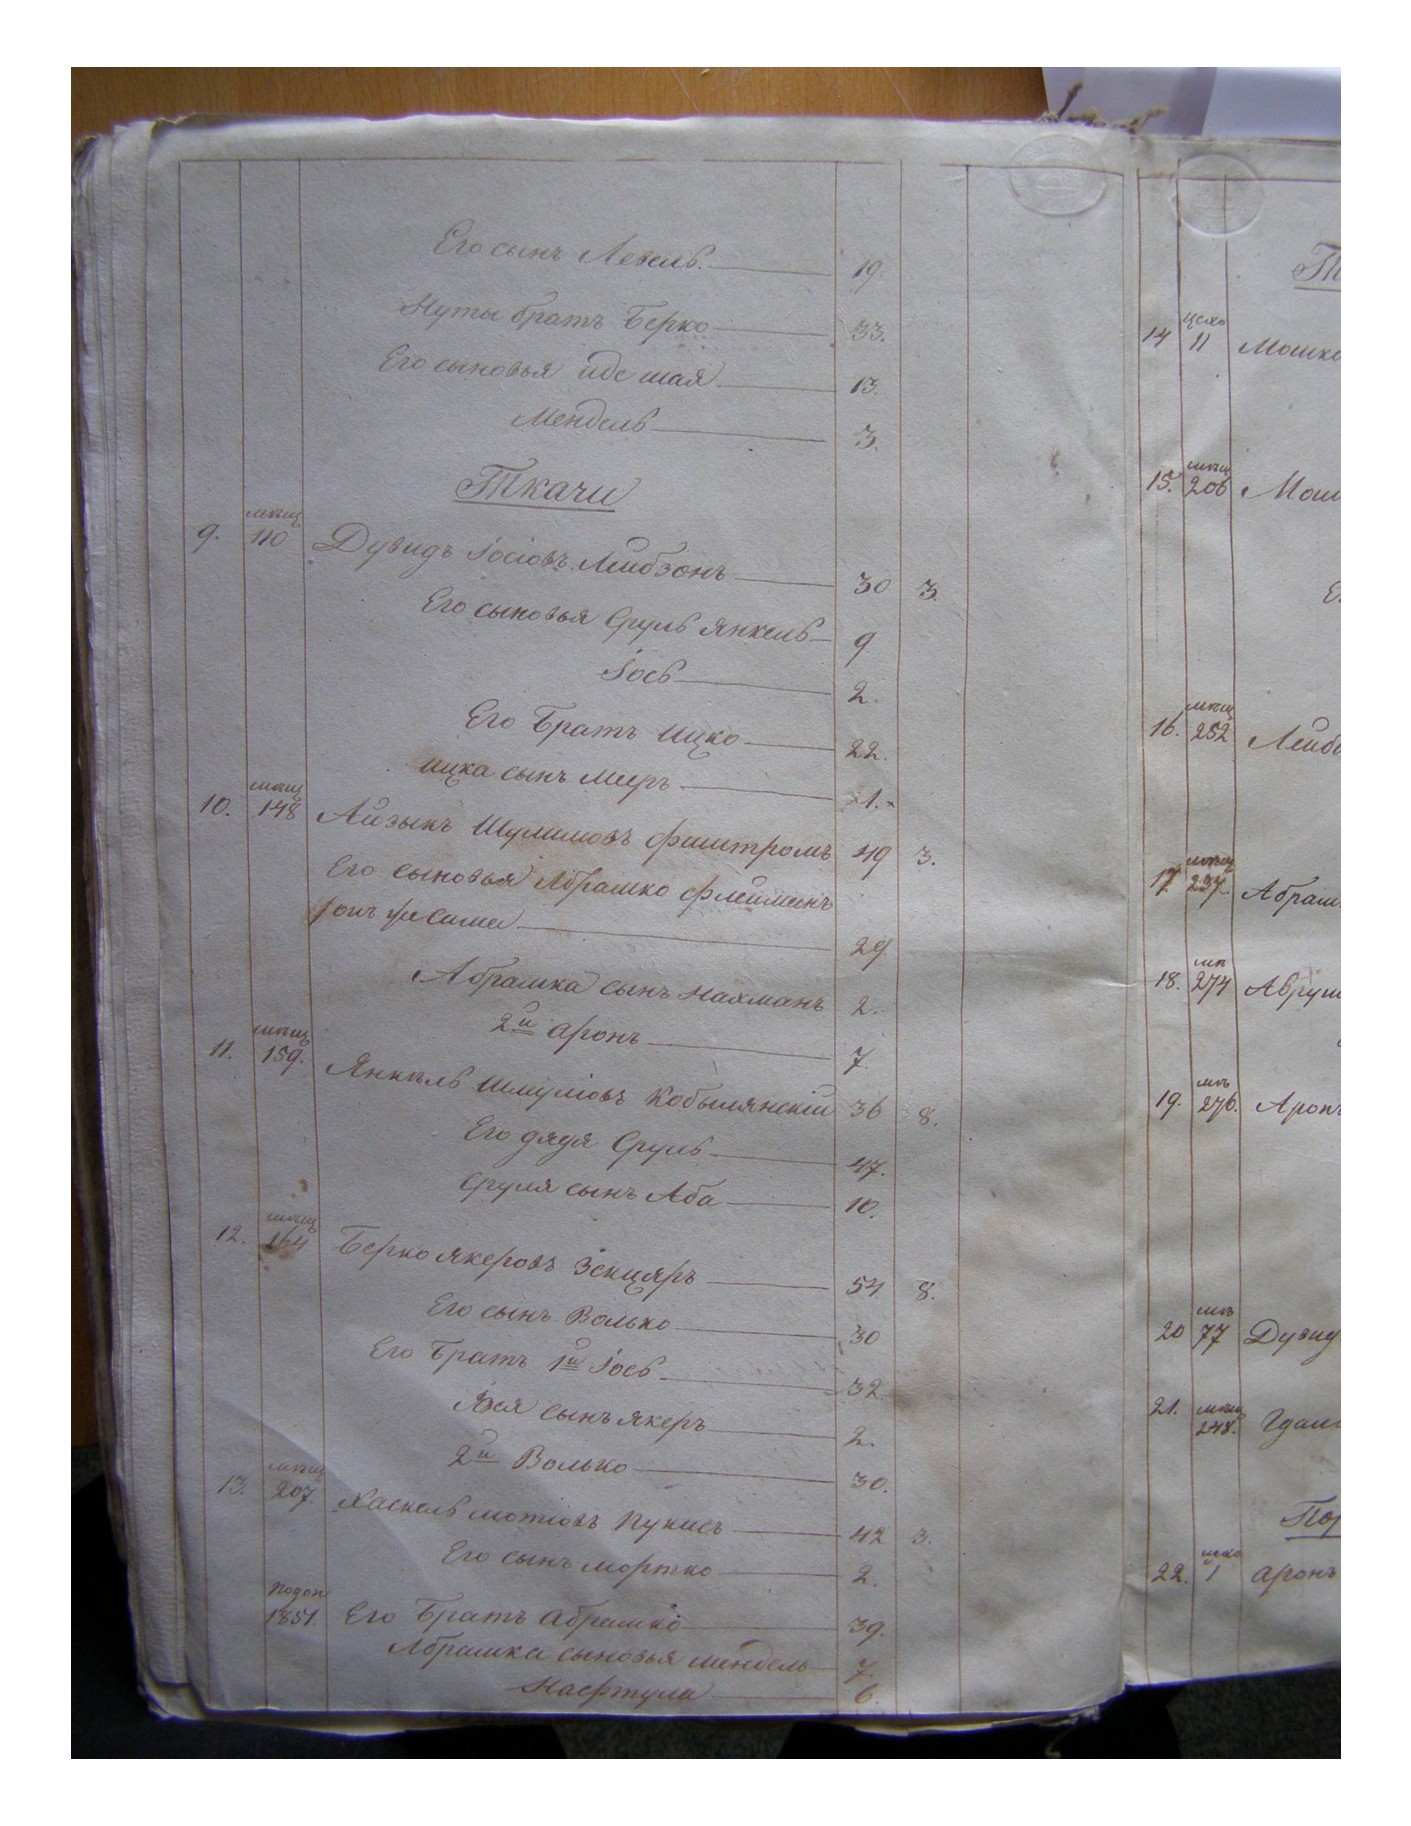 Его сынъ Лейзель. 19.
Нуты братъ Берко 33.
Его сыновья иде шая 13.
Мендель 3.
Ткачи
9. мѣщ 110 Дувидъ Іосіовъ Лейбзонъ 30 3.
Его сыновья Сруль Янкель 9
Іось 2.
Его Братъ Ицко 22.
ицка сынъ Меръ 1.
10. мѣщ 148 Айзыкъ Шулимовъ 49 3.
Его сыновья Абрашко Флейманъ
29
Абрашка сынъ Нахманъ 2.
2й Аронъ 7.
11. мѣщ 159. Янкель Шмуліовъ Кобылянскій 36 8.
Его дядя Сруль 47.
Сруля сынъ Аба 10.
12. мѣщ 164 Берко Якеровъ Зекцяръ 54 8.
Его сынъ Волько 30
Его Братъ 1й Іось 32
сынъ якеръ 2.
2й Волько 30.
13. мѣщ 207. Хаскель Мотіовъ Пукисъ 42 3.
Его сынъ Мортко 2.
1851. Его Братъ Абрашко 39.
Абрашка сыновья мендель 7.
Нафтула 6.
Т
14 цехо 11 Мошко
15. мѣщ 206 Мош
Е
16. мѣщ 252 Лейб
17 мѣщ 237. Абраш
18. мѣ 274 Авруш
19. мѣ 276. Аронъ
20 мѣ 77 Дувид
21. мѣщ 248. Гдал
Пор
22. цехо 1 аронъ